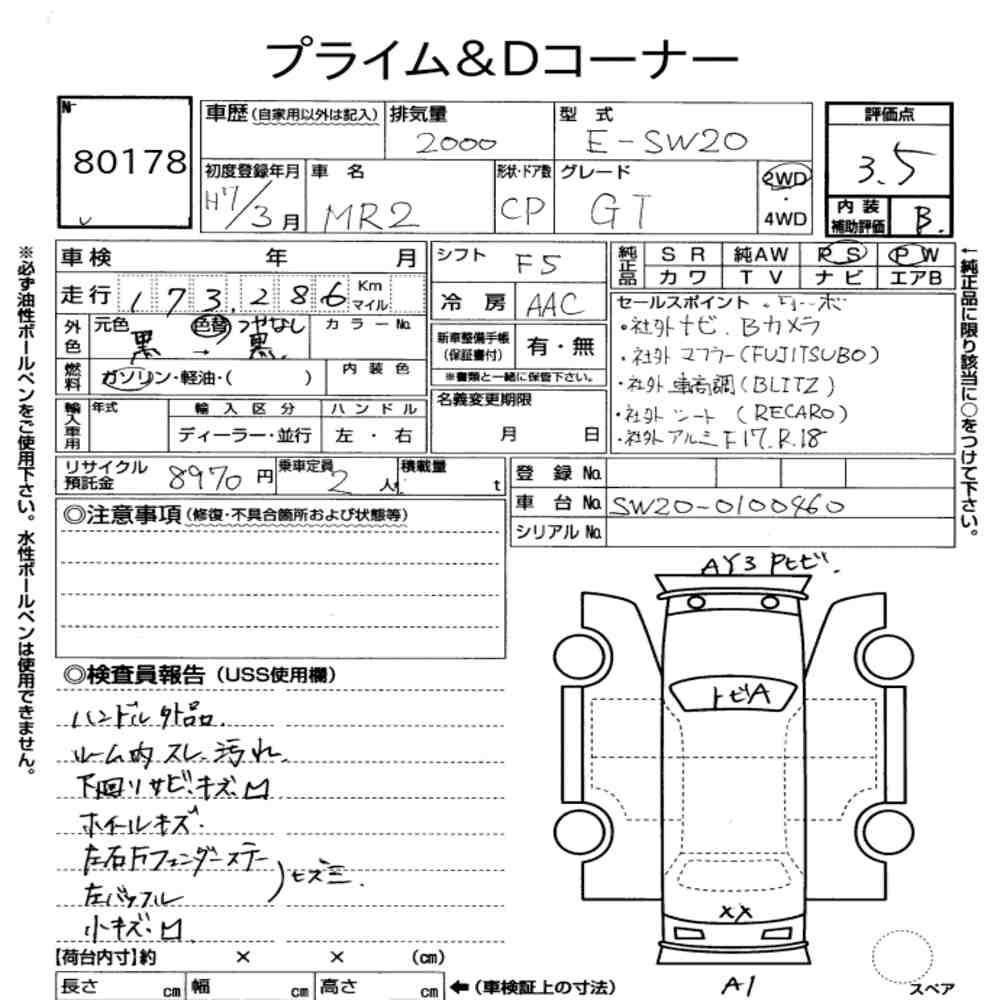 プライム&Dコーナー
No
80178
車歴(自家用以外は記入)
排気量
2000
型 式
E-SW20
評価点
3.5
初度登録年月
H7/3月
車 名
MR2
形状・ドア数
CP
グレード
GT
2WD
・
4WD
内装
補助評価
B.
車検 年 月
走行 173,286 Km
マイル
シフト F5
冷 房 AAC
純正品
SR 純AW PS PW
カワ TV ナビ エアB
外色
元色 黒 → 色替 つやなし 黒.
カラーNo.
燃料
ガソリン・軽油・( )
内装色
新車整備手帳
(保証書付)
有・無
※書類と一緒に保管下さい。
セールスポイント
・社外ナビ.Bカメラ
・社外マフラー(FUJITSUBO)
・社外車高調(BLITZ)
・社外シート(RECARO)
・社外アルミF17.R.18
輸入車用
年式
輸入区分
ディーラー・並行
ハンドル
左・右
名義変更期限
月 日
リサイクル
預託金
8970円
乗車定員
2人
積載量
t
登録No.
車台No. SW20-0100460
シリアルNo.
◎注意事項(修復・不具合箇所および状態等)
◎検査員報告(USS使用欄)
ハンドル外品.
ルーム内スレ.汚れ.
下回りサビ.キズ凹
ホイールキズ.
左右Fフェンダーステー
左バッフル
)ヒズミ.
小キズ.凹
AY3 Pヒビ.
トビA
XX
A1
スペア
【荷台内寸】約 × × (cm)
長さ cm 幅 cm 高さ cm ←(車検証上の寸法)
※必ず油性ボールペンをご使用下さい。水性ボールペンは使用できません。
←純正品に限り該当に○をつけて下さい。